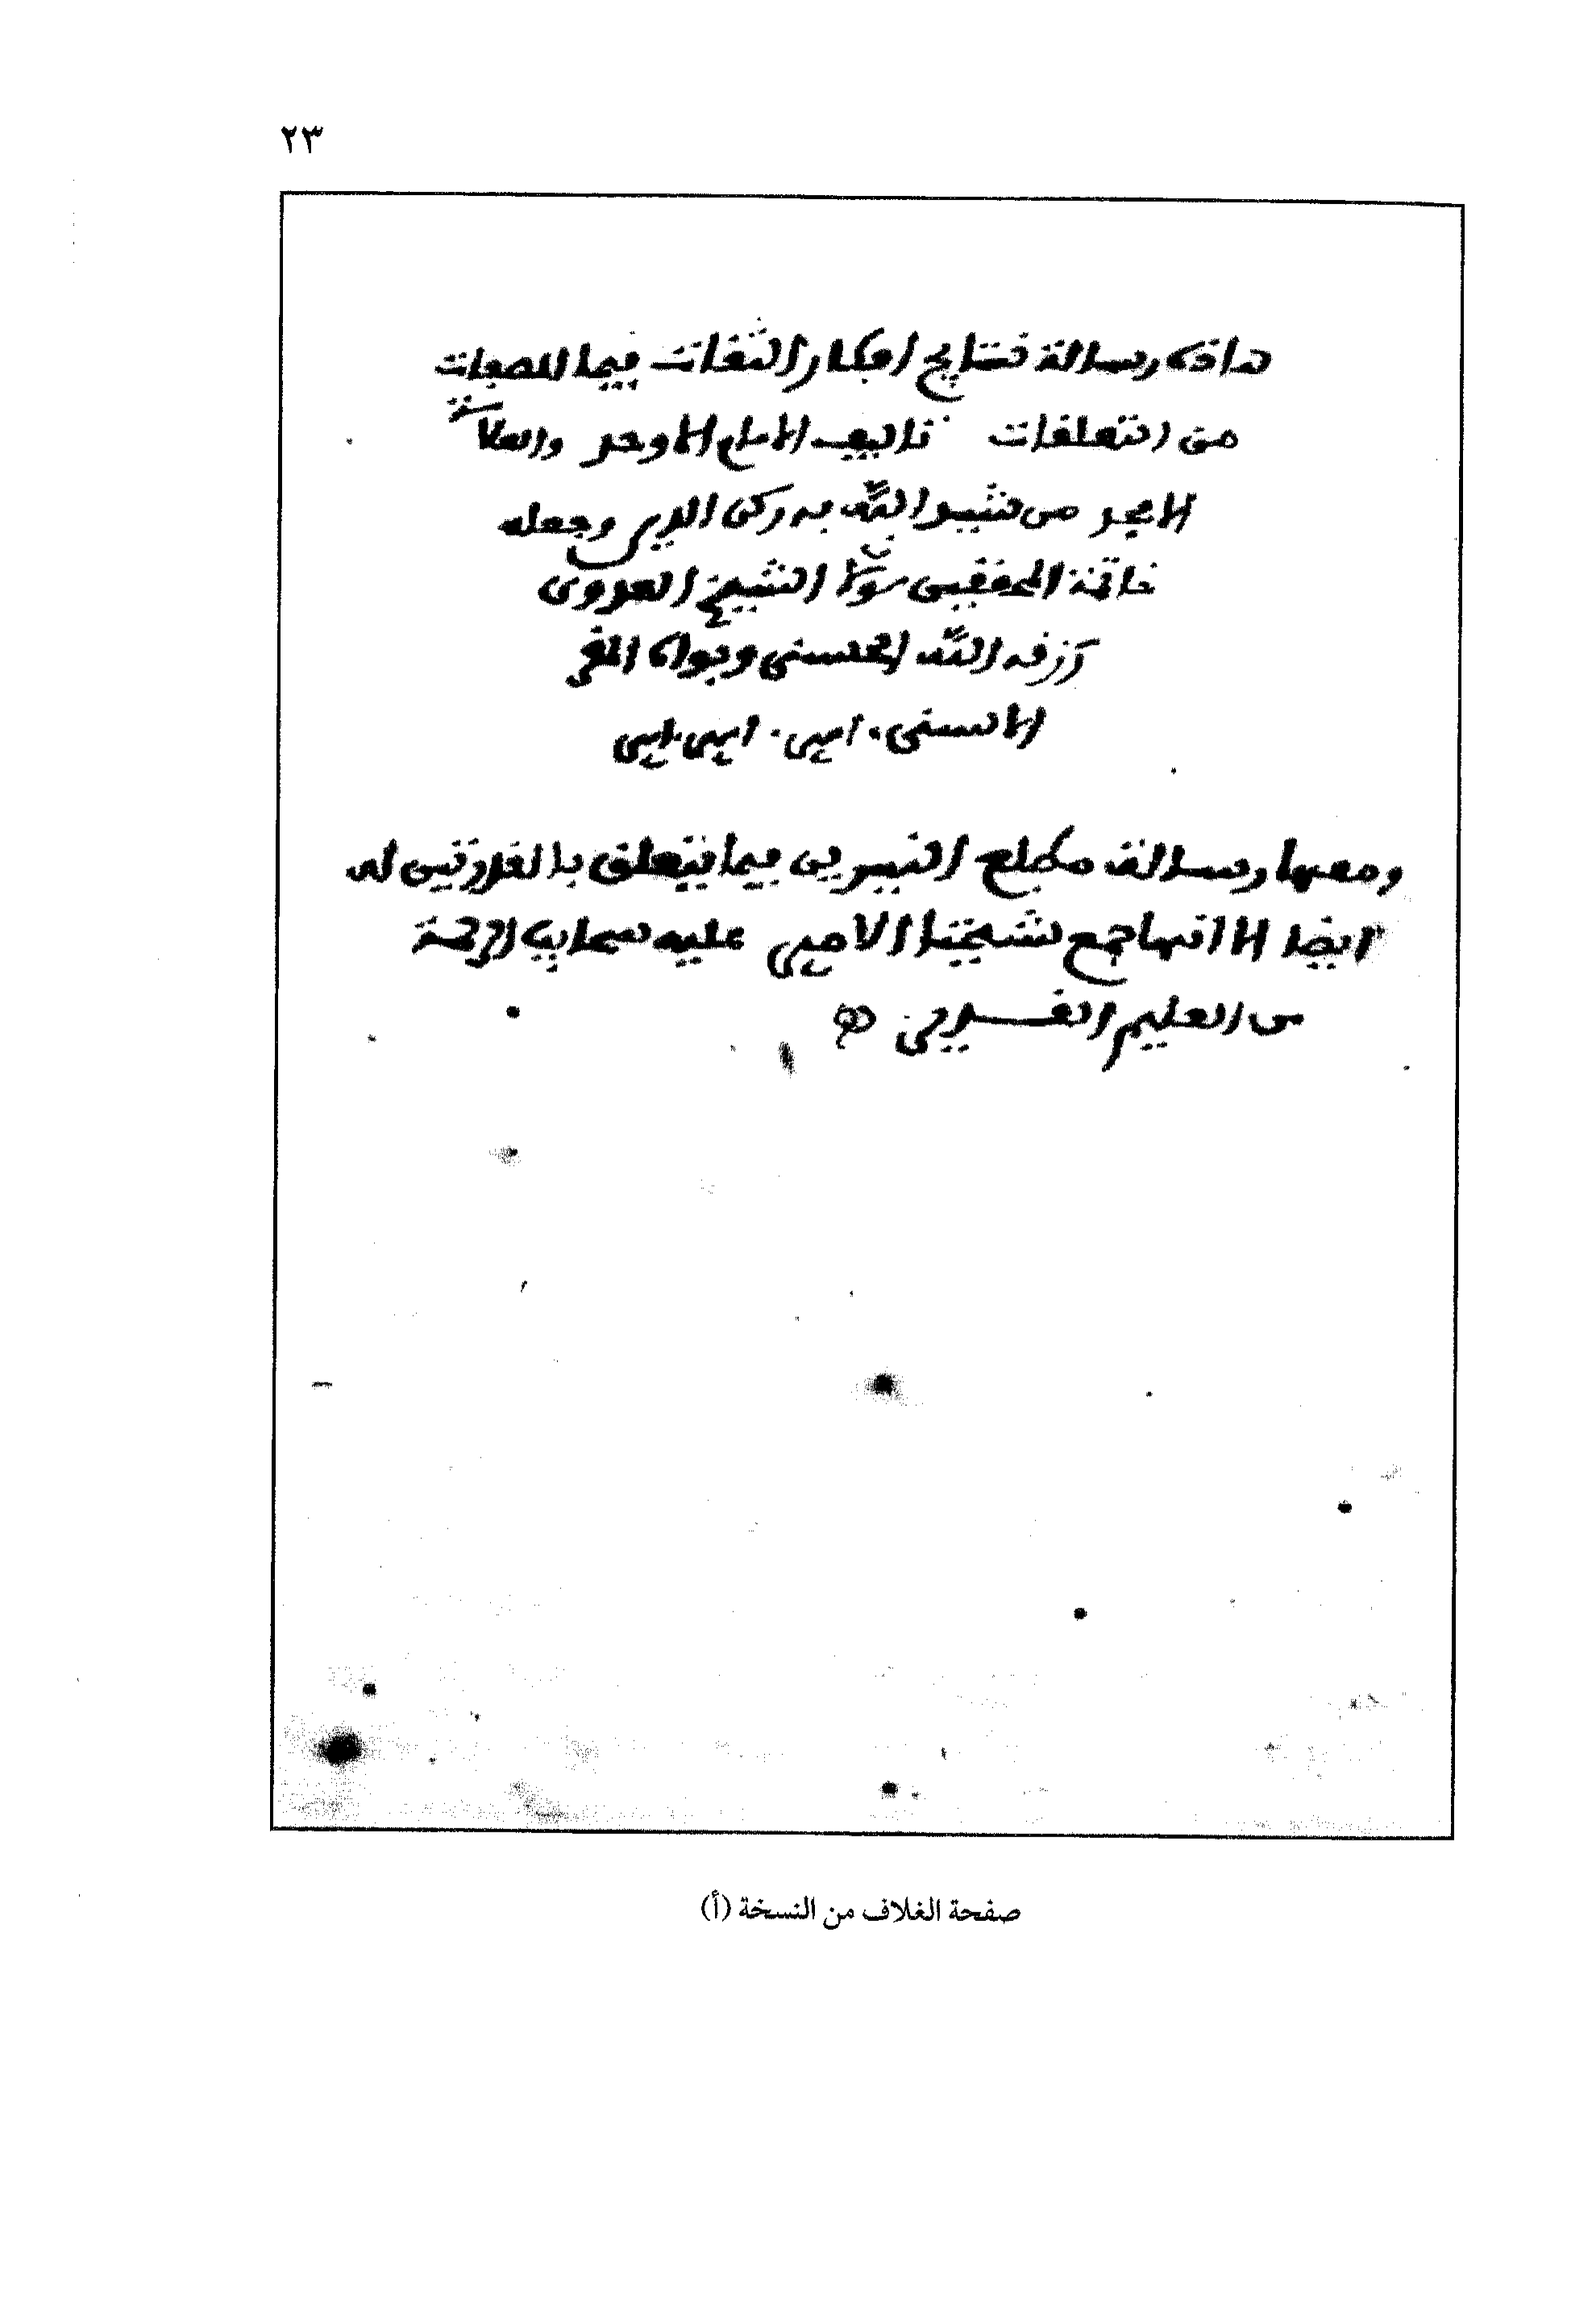 ٢٣
هاذه رسالة نتايج افكار الثقات فيما للصفات
من التعلقات تاليف الامام الاوحد والعلامة
الامجد من شيد الله به ركن الدين وجعله
خاتمة المحققين مولانا الشيخ العدوى
رزقه الله الحسنى وبواه المقر
الاسنى . امين . امين . امين
ومعها رسالة مطلع النيرين فيما يتعلق بالقدرتين له
ايضا الا انها جمع شيخنا الامير عليه سحايب الرحمة
من العليم القدير
صفحة الغلاف من النسخة (أ)